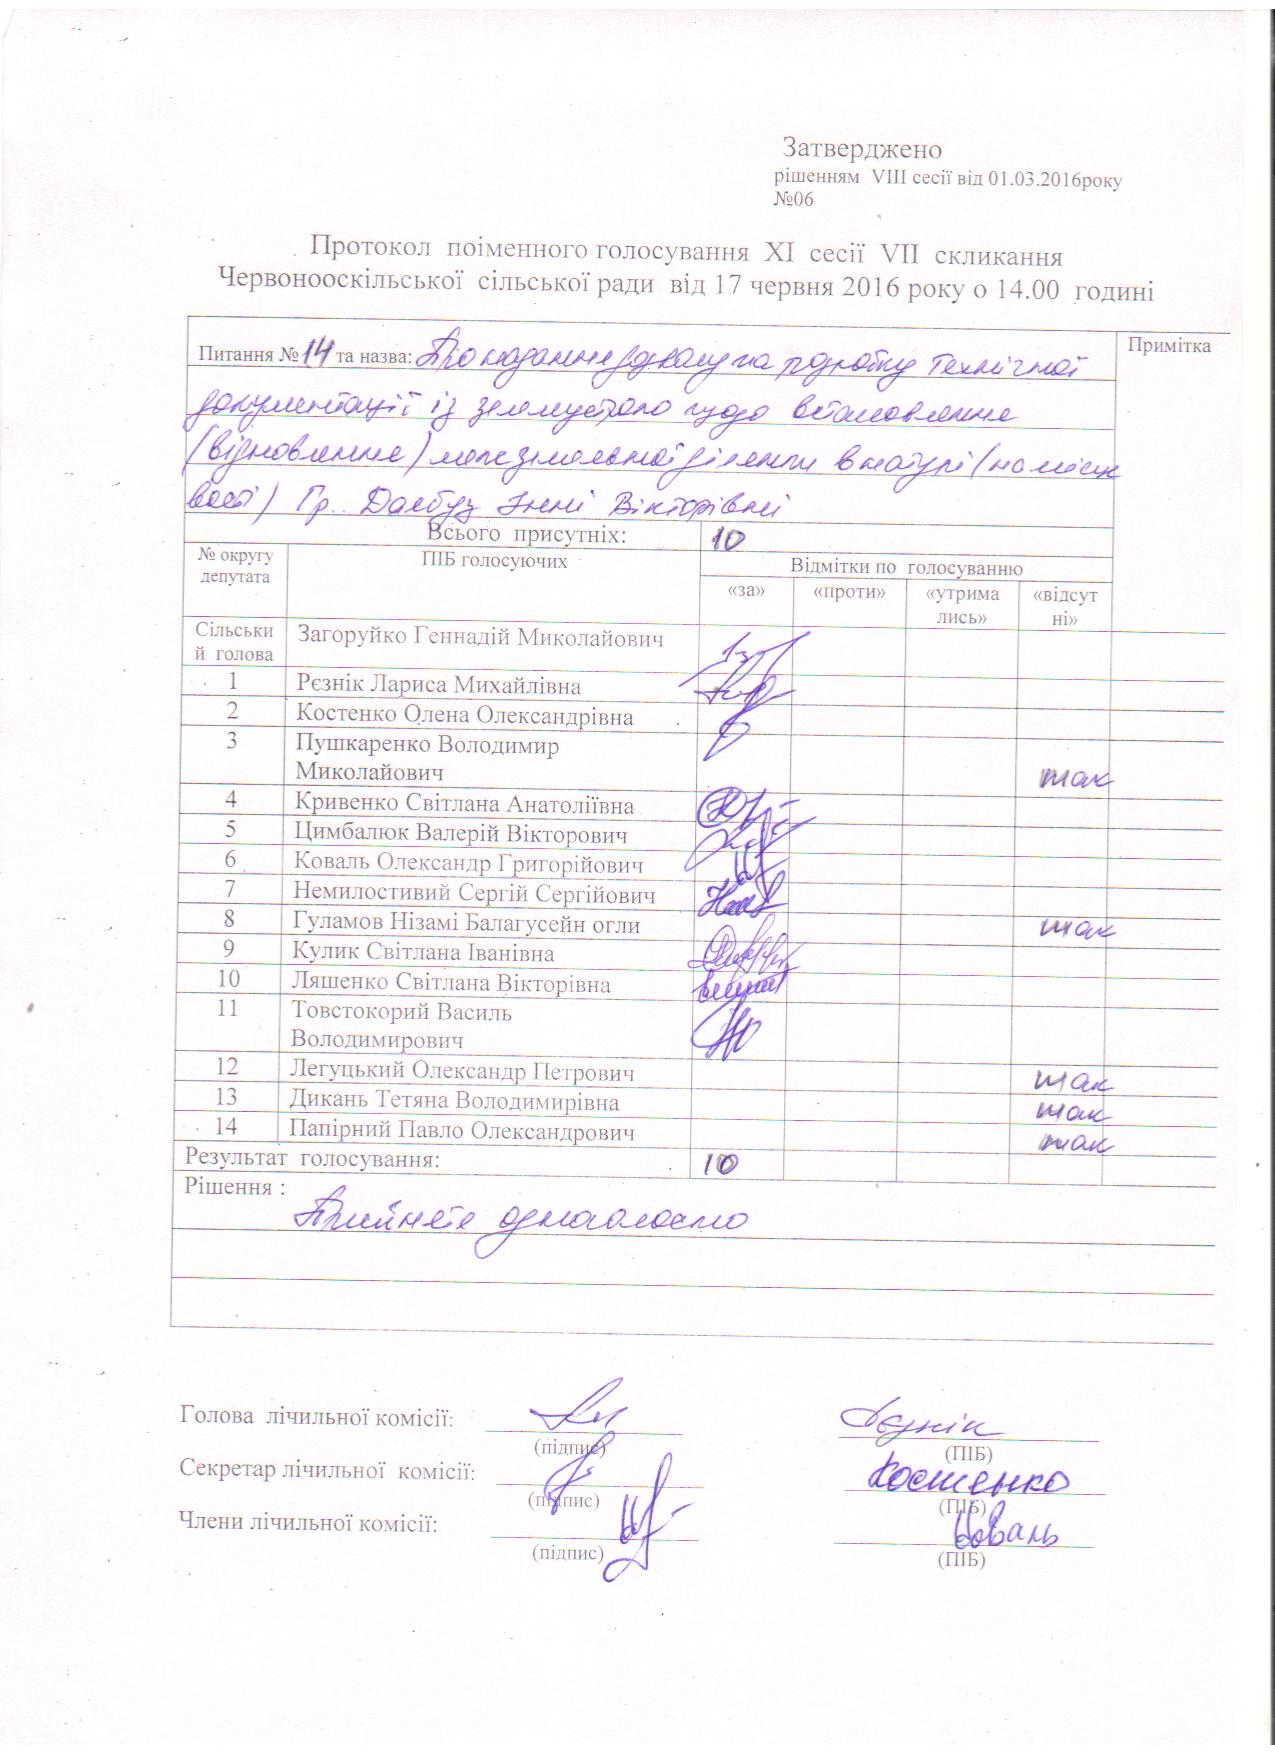 Затверджено
рішенням VIII сесії від 01.03.2016року
№06
Протокол поіменного голосування XI сесії VII скликання
Червонооскільської сільської ради від 17 червня 2016 року о 14.00 годині
Питання №14 та назва: Про надання дозволу на розробку технічної Примітка
документації із землеустрою щодо встановлення
(відновлення) меж земельної ділянки в натурі (на місце
вості) Гр. Інні Вікторівні
Всього присутніх: 10
№ округу ПІБ голосуючих Відмітки по голосуванню
депутата «за» «проти» «утрима «відсут
лись» ні»
Сільськи Загоруйко Геннадій Миколайович
й голова
1 Рєзнік Лариса Михайлівна
2 Костенко Олена Олександрівна
3 Пушкаренко Володимир
Миколайович так
4 Кривенко Світлана Анатоліївна
5 Цимбалюк Валерій Вікторович
6 Коваль Олександр Григорійович
7 Немилостивий Сергій Сергійович
8 Гуламов Нізамі Балагусейн огли так
9 Кулик Світлана Іванівна
10 Ляшенко Світлана Вікторівна
11 Товстокорий Василь
Володимирович
12 Легуцький Олександр Петрович так
13 Дикань Тетяна Володимирівна так
14 Папірний Павло Олександрович так
Результат голосування: 10
Рішення :
Прийнято одноголосно
Голова лічильної комісії: Рєзнік
(підпис) (ПІБ)
Секретар лічильної комісії: Костенко
(підпис) (ПІБ)
Члени лічильної комісії: Коваль
(підпис) (ПІБ)